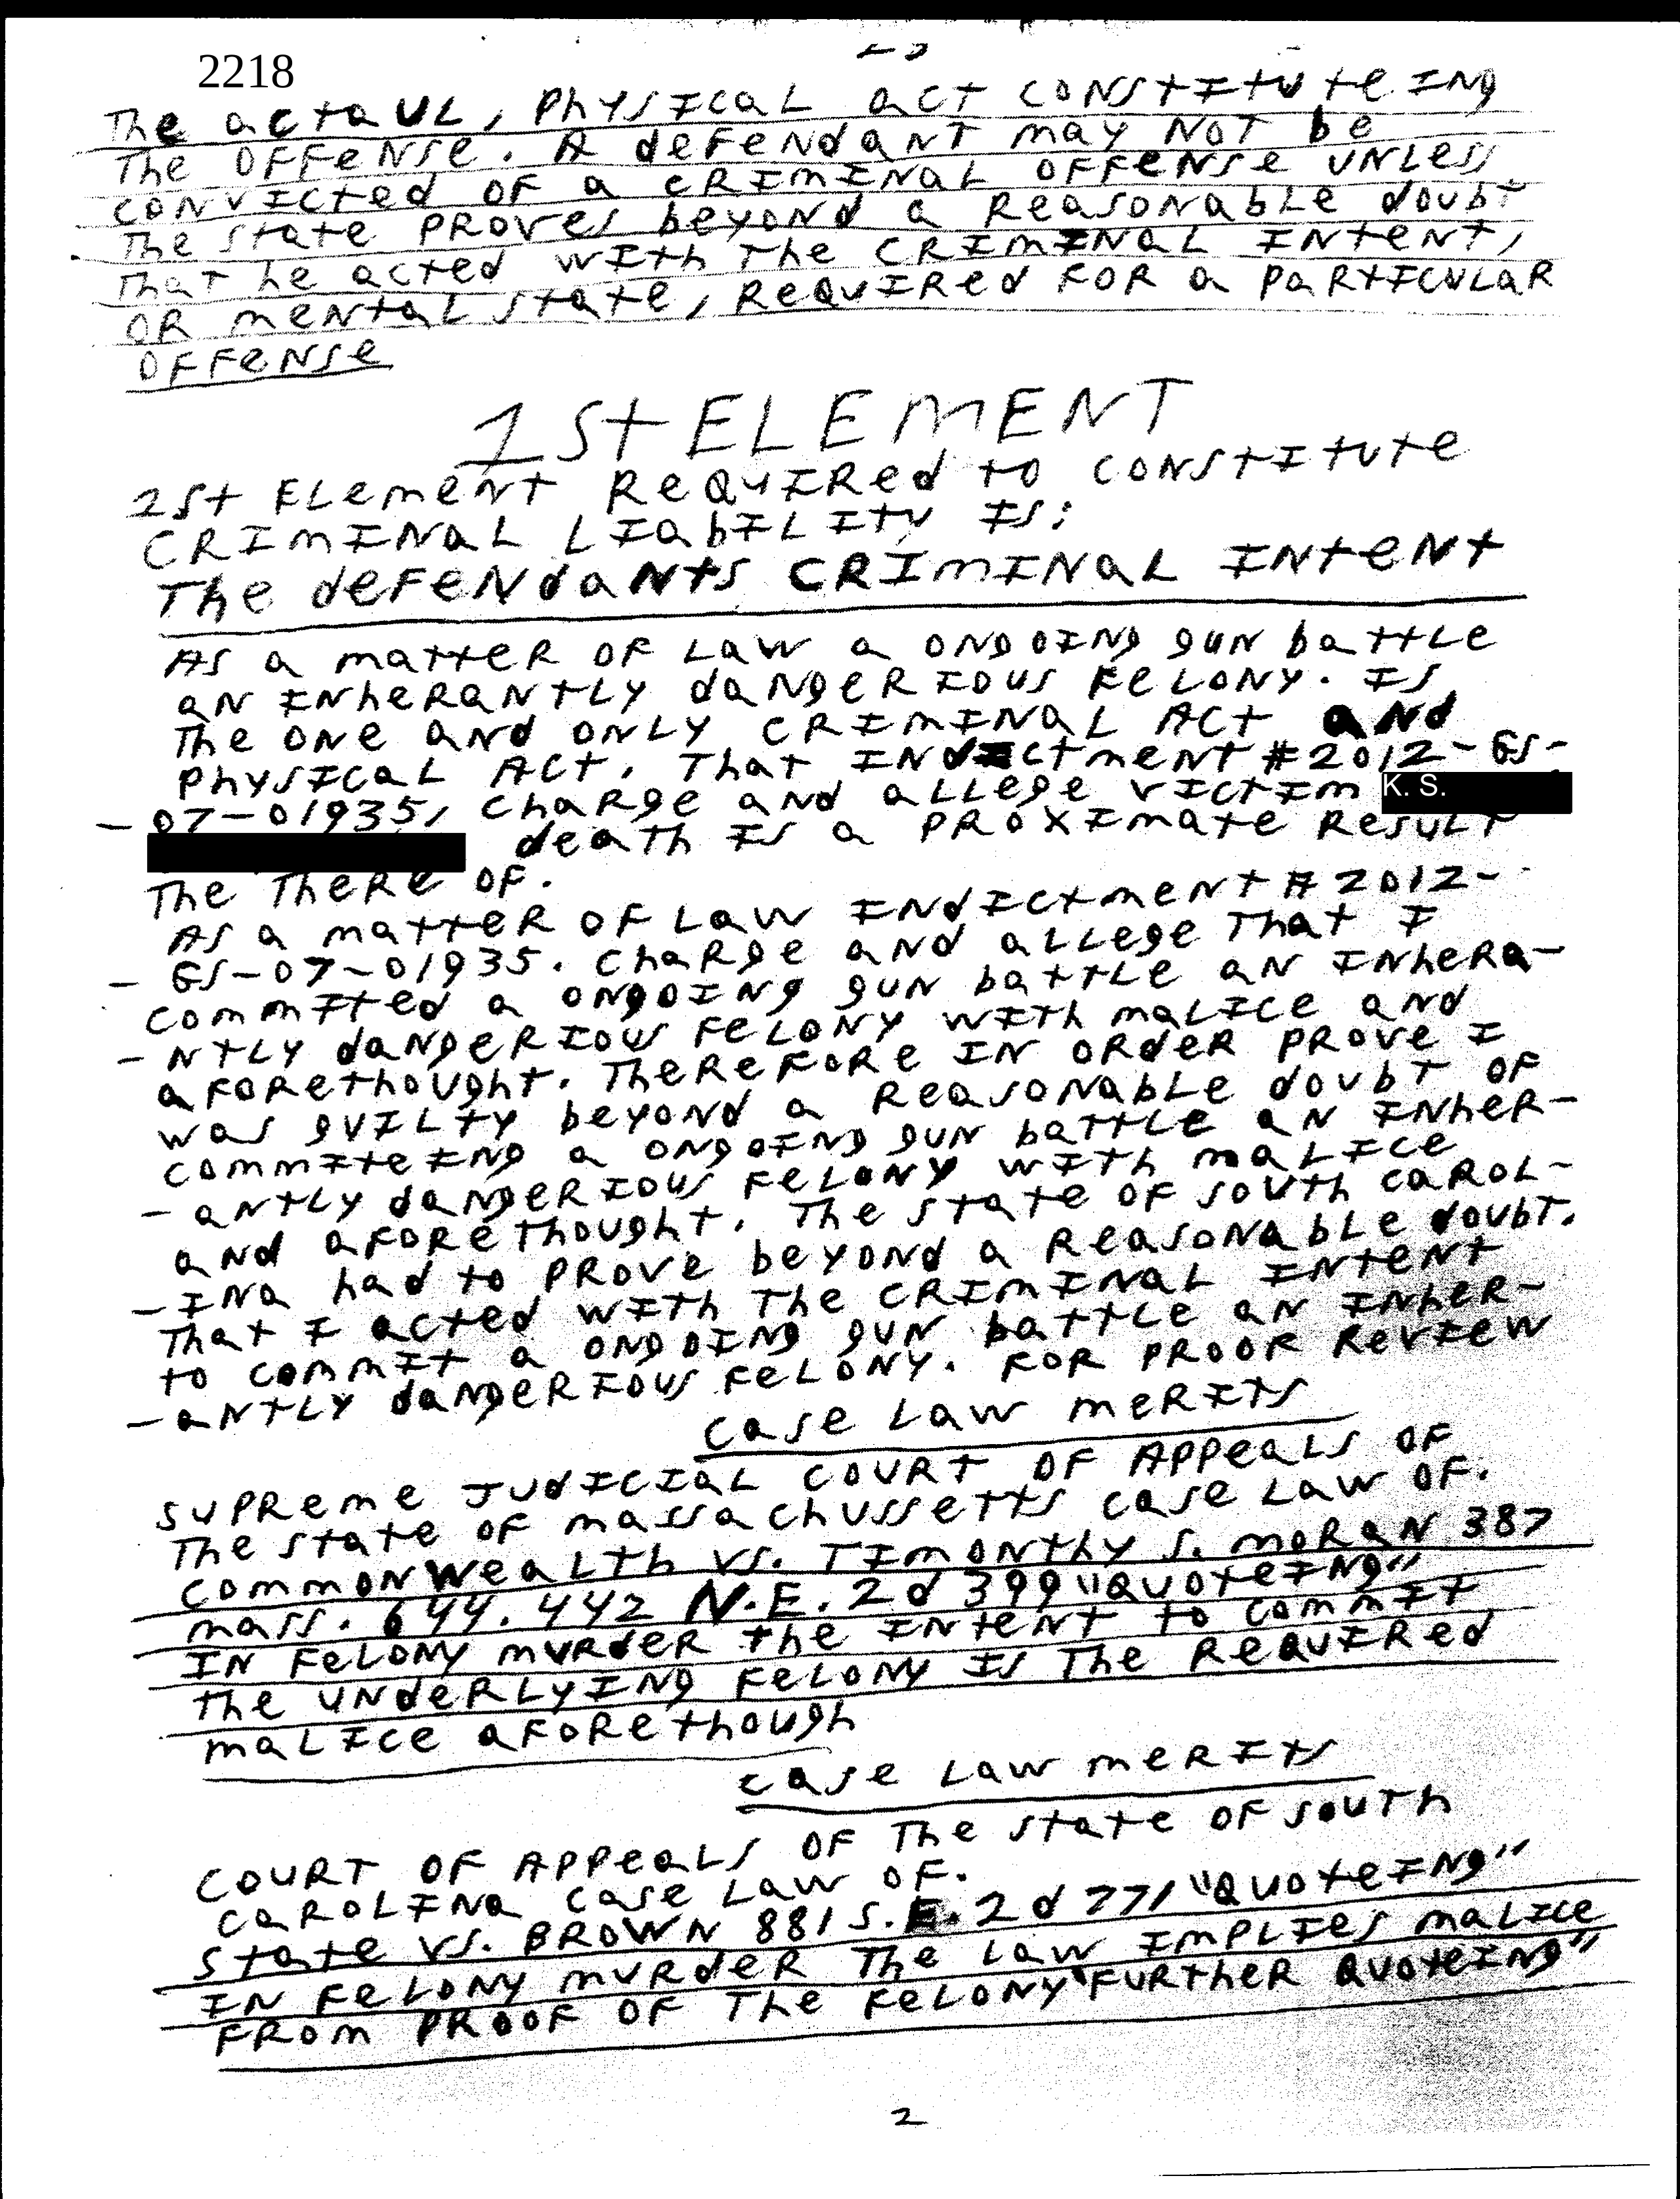 2218
The actaUL, Physical act constituteing
The offense. A defendant may not be
convicted of a criminal offense unless
The state proves beyond a reasonable doubt
That he acted with the criminal intent,
or mental state, required for a particular
offense
1st ELEMENT
1st Element required to constitute
criminal liability is:
The defendants criminal intent
As a matter of law a ongoing gun battle
an inherantly dangerious felony. Is
The one and only criminal Act and
physical Act. That indictment #2012-GS-
-07-01935, charge and allege victim K. S.
death is a proximate result
The There of.
As a matter of law indictment #2012-
-GS-07-01935. charge and allege That I
committed a ongoing gun battle an inhera-
-ntly dangerious felony with malice and
aforethought. Therefore in order prove I
was guilty beyond a reasonable doubt of
commiteing a ongoing gun battle an inher-
-antly dangerious felony with malice
and aforethought. The state of south carol-
-ina had to prove beyond a reasonable doubt.
That I acted with The criminal intent
to commit a ongoing gun battle an inher-
-antly dangerious felony. For proof review
case law merits
supreme Judicial court of Appeals of
The state of massachussetts case law of.
commonwealth vs. Timonthy S. moran 387
mass. 644. 442 N.E. 2d 399 "quoteing"
In felony murder the intent to commit
the underlying felony is the required
malice aforethough
case law merits
court of Appeals of the state of south
carolina case law of.
state vs. Brown 881 S.E. 2d 771 "quoteing"
in felony murder the law implies malice
from proof of the felony "further quoteing"
2